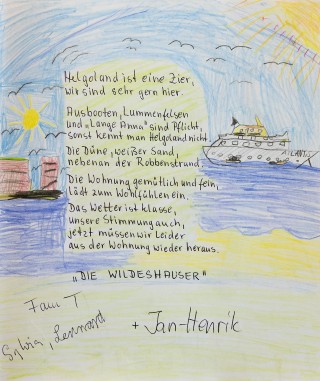 Helgoland ist eine Zier,
wir sind sehr gern hier.
Ausbooten, Lummenfelsen
und „Lange Anna" sind Pflicht,
sonst kennt man Helgoland nicht
Die Düne, weißer Sand,
nebenan der Robbenstrand.
Die Wohnung gemütlich und fein,
lädt zum Wohlfühlen ein.
Das Wetter ist klasse,
unsere Stimmung auch,
jetzt müssen wir Leider
aus der Wohnung wieder heraus.
„DIE WILDESHAUSER"
Fam T
Sylvia, Lennard
+ Jan-Henrik